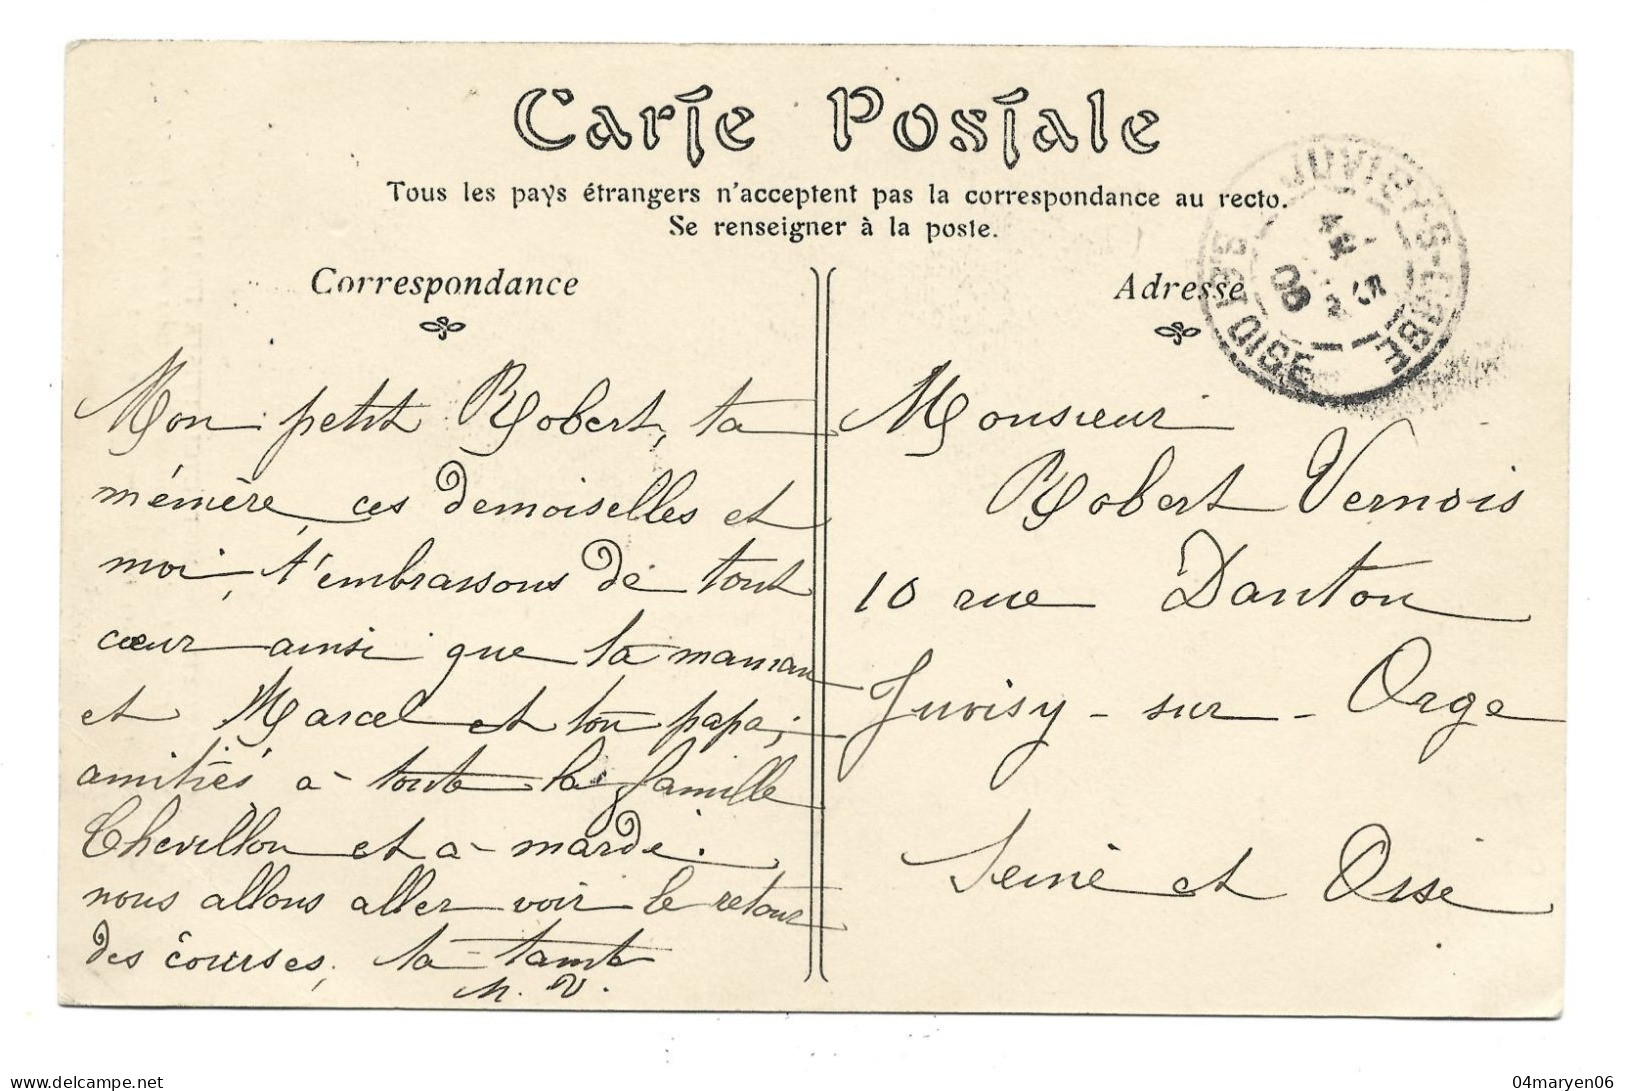 Carte Postale
Tous les pays étrangers n'acceptent pas la correspondance au recto.
Se renseigner à la poste.
Correspondance
Mon petit Robert, ta
mémère, ces demoiselles et
moi, t'embrassons de tout
cœur ainsi que ta maman
et Marcel et ton papa;
amitiés à toute la famille
Chevillon et à mardi.
nous allons aller voir le retour
des courses, ta tante
M. V.
Adresse
Monsieur
Robert Vernois
10 rue Danton
Juvisy-sur-Orge
Seine et Oise
JUVISY-S-ORGE
08
SET OISE
delcampe.net
04maryen06